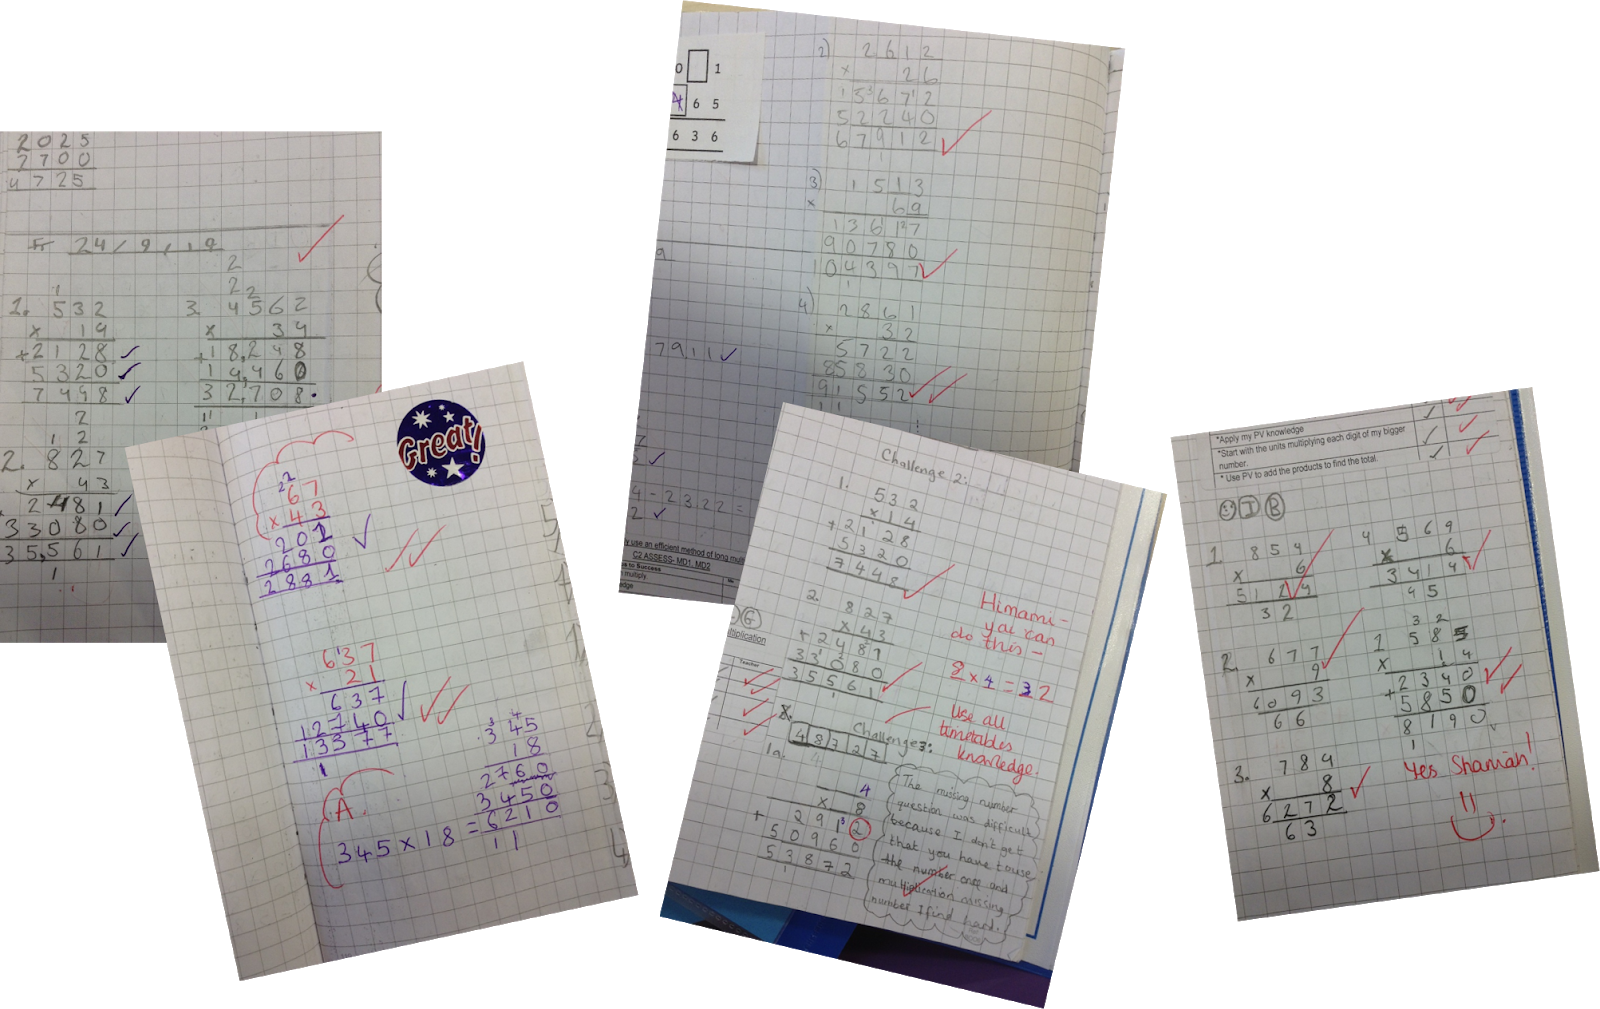 2025
2700
4725
24/9/19
1. 532
x 14
+2128
5320
7448
3. 4562
x 34
+18,248
14,460
32,708.
2. 827
x 43
2481
33080
35,561
1
Great!
22
67
x 43
201
2680
2881
637
x 21
637
12740
13377
1
A.
345
18
2760
3450
345 x 18 = 6210
11
0 1
4 6 5
6 3 6
2) 2612
x 26
15672
52240
67912
1
3) 1513
x 69
13617
90780
104397
1
4) 2861
x 32
5722
85830
91552
7911
4-2322=
y use an efficient method of long mul
C2 ASSESS- MD1, MD2
s to Success
multiply
Challenge 2:
1. 532
x 14
+2128
5320
7448
2. 827
x 43
+2481
33080
35561
1
Himami-
you can
do this -
8 x 4 = 32
Use all
timetables
knowledge.
Challenge 3:
48727
1a.
4
x 8
+ 2912
50960
53872
1
The missing number
question was difficult
because I don't get
that you have to use
the number once and
multiplication missing
number I find hard.
ltiplication
Teacher
*Apply my PV knowledge
*Start with the units multiplying each digit of my bigger
number.
* Use PV to add the products to find the total.
I B
1. 854
x 6
5124
32
4 569
x 6
3414
45
2. 677
x 9
6093
66
32
585
x 14
2340
+5850
8190
1
3. 784
x 8
6272
63
Yes Shaniah!